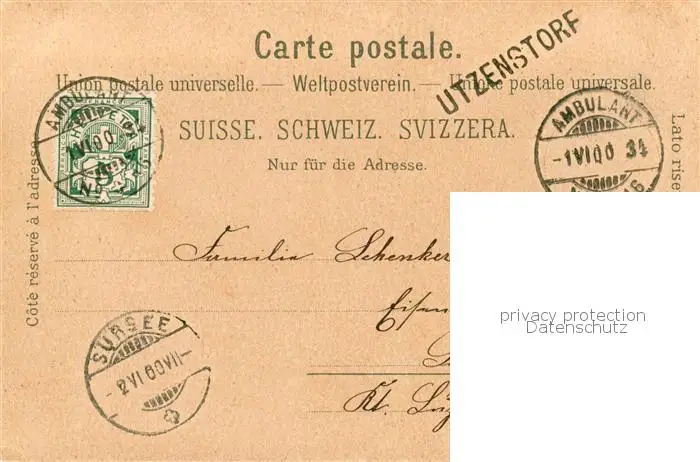 Carte postale.
UTZENSTORF
Union postale universelle. — Weltpostverein. — Unione postale universale.
SUISSE. SCHWEIZ. SVIZZERA.
Nur für die Adresse.
AMBULANT
1 VI 00
AMBULANT
-1 VI 00 34
Côté réservé à l'adresse
Lato rise
Familie Schenker
Kt. Luz
SURSEE
-2 VI 00 VII-
privacy protection
Datenschutz